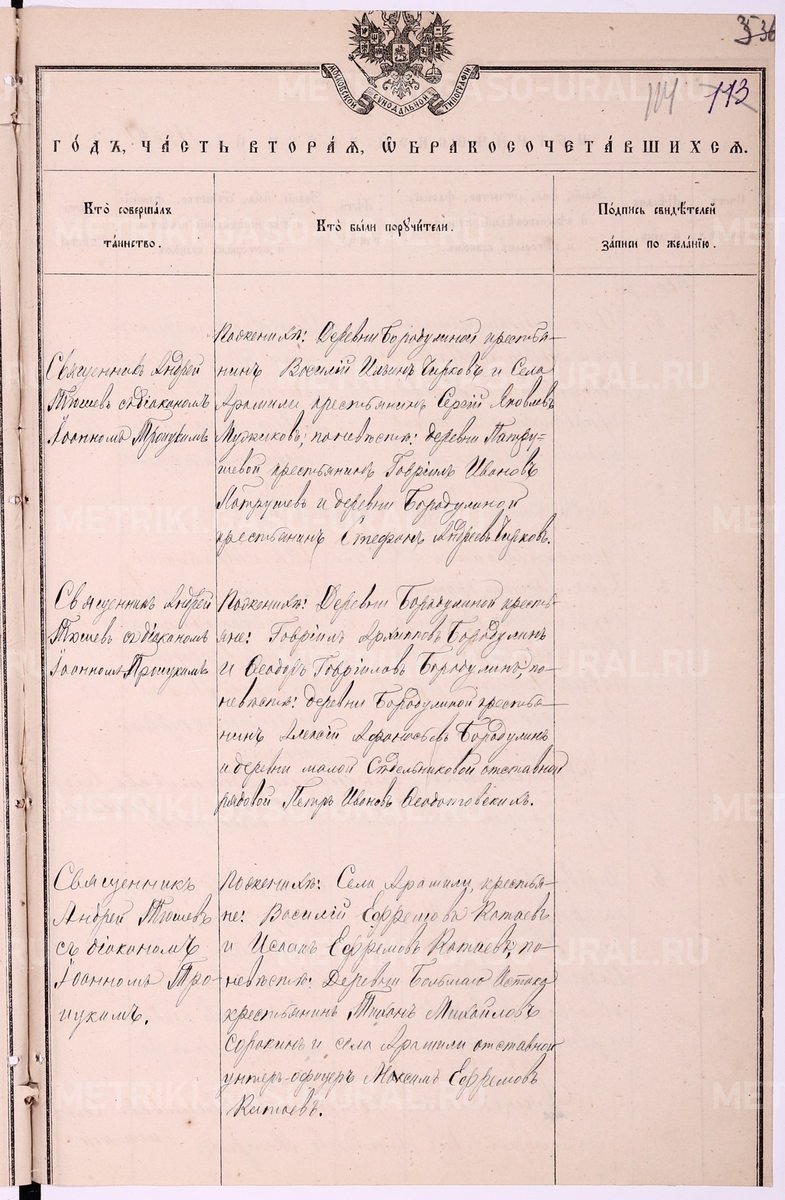 МОСКОВСКОЙ СѴНОДАЛЬНОЙ ТИПОГРАФІИ
36
104 113
ГО́ДЪ, ЧА́СТЬ ВТОРА́Я, Ѽ БРАКОСОЧЕТА́ВШИХСЯ.
Кто̀ соверша́лъ
та́инство.
Кто̀ бы́ли поручи́тели.
По́дпись свидѣ́телей
за́писи по жела́нїю.
Священникъ Андрей
Тюшевъ съ діакономъ
Іоанномъ Троицкимъ
По женихѣ: Деревни Бородулиной крестья-
нинъ Василій Ильинъ Чирковъ и Села
Арамили крестьянинъ Сергій Яковлевъ
Мужиковъ; по невѣстѣ: деревни Патру-
шевой крестьянинъ Гавріилъ Ивановъ
Патрушевъ и деревни Бородулиной
крестьянинъ Стефанъ Андреевъ Чирковъ.
Священникъ Андрей
Тюшевъ съ діакономъ
Іоанномъ Троицкимъ
По женихѣ: Деревни Бородулиной кресть-
яне: Гавріилъ Архиповъ Бородулинъ
и Ѳеодоръ Гавріиловъ Бородулинъ; по
невѣстѣ: деревни Бородулиной крестья-
нинъ Алексій Афанасьевъ Бородулинъ
и деревни малой Сѣдельниковой отставной
рядовой Петръ Ивановъ Ѳеодотовскихъ.
Священникъ
Андрей Тюшевъ
съ діакономъ
Іоанномъ Тро-
ицкимъ.
По женихѣ: Села Арамили, крестья-
не: Василій Ефремовъ Катаевъ
и Исаакъ Ефремовъ Катаевъ; по-
невѣстѣ: Деревни Большаго Истока
крестьянинъ Тихонъ Михайловъ
Сорокинъ и села Арамили отставной
унтеръ-офицеръ Максимъ Ефремовъ
Катаевъ.